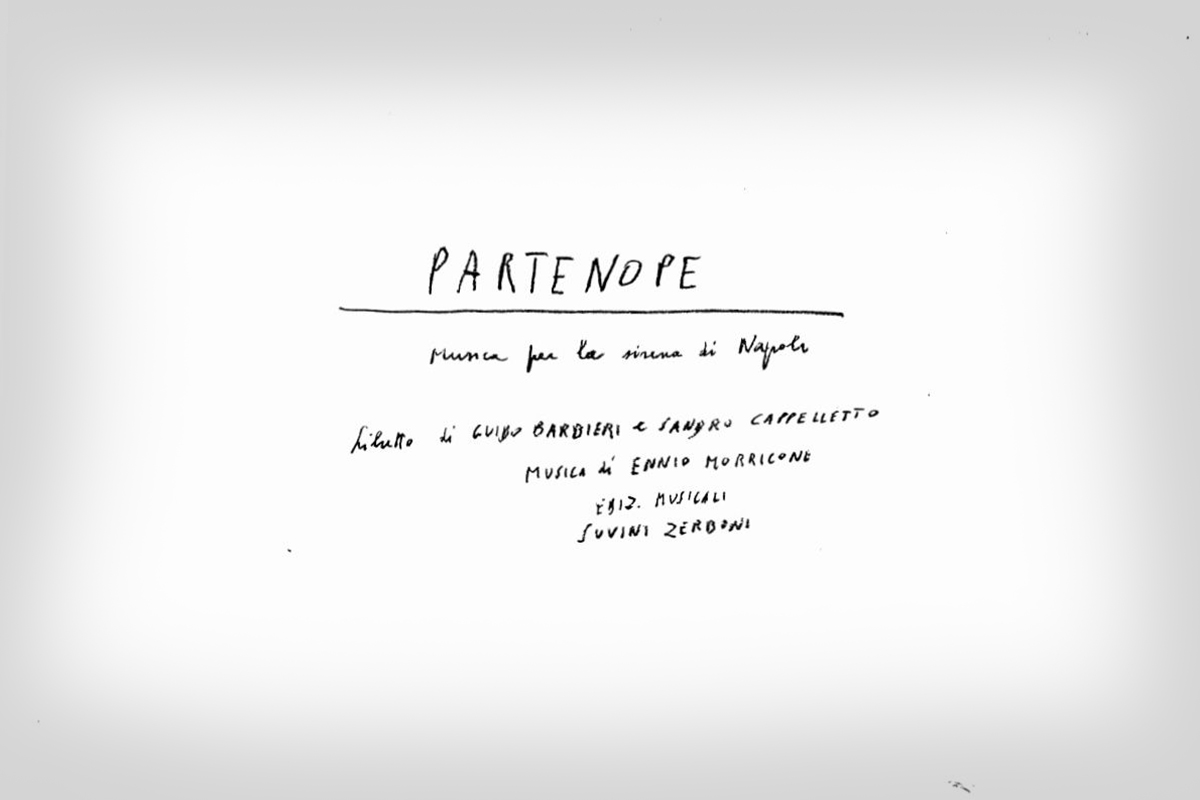 PARTENOPE
Musica per la sirena di Napoli
Libretto di GUIDO BARBIERI e SANDRO CAPPELLETTO
MUSICA di ENNIO MORRICONE
EDIZ. MUSICALI
SUVINI ZERBONI